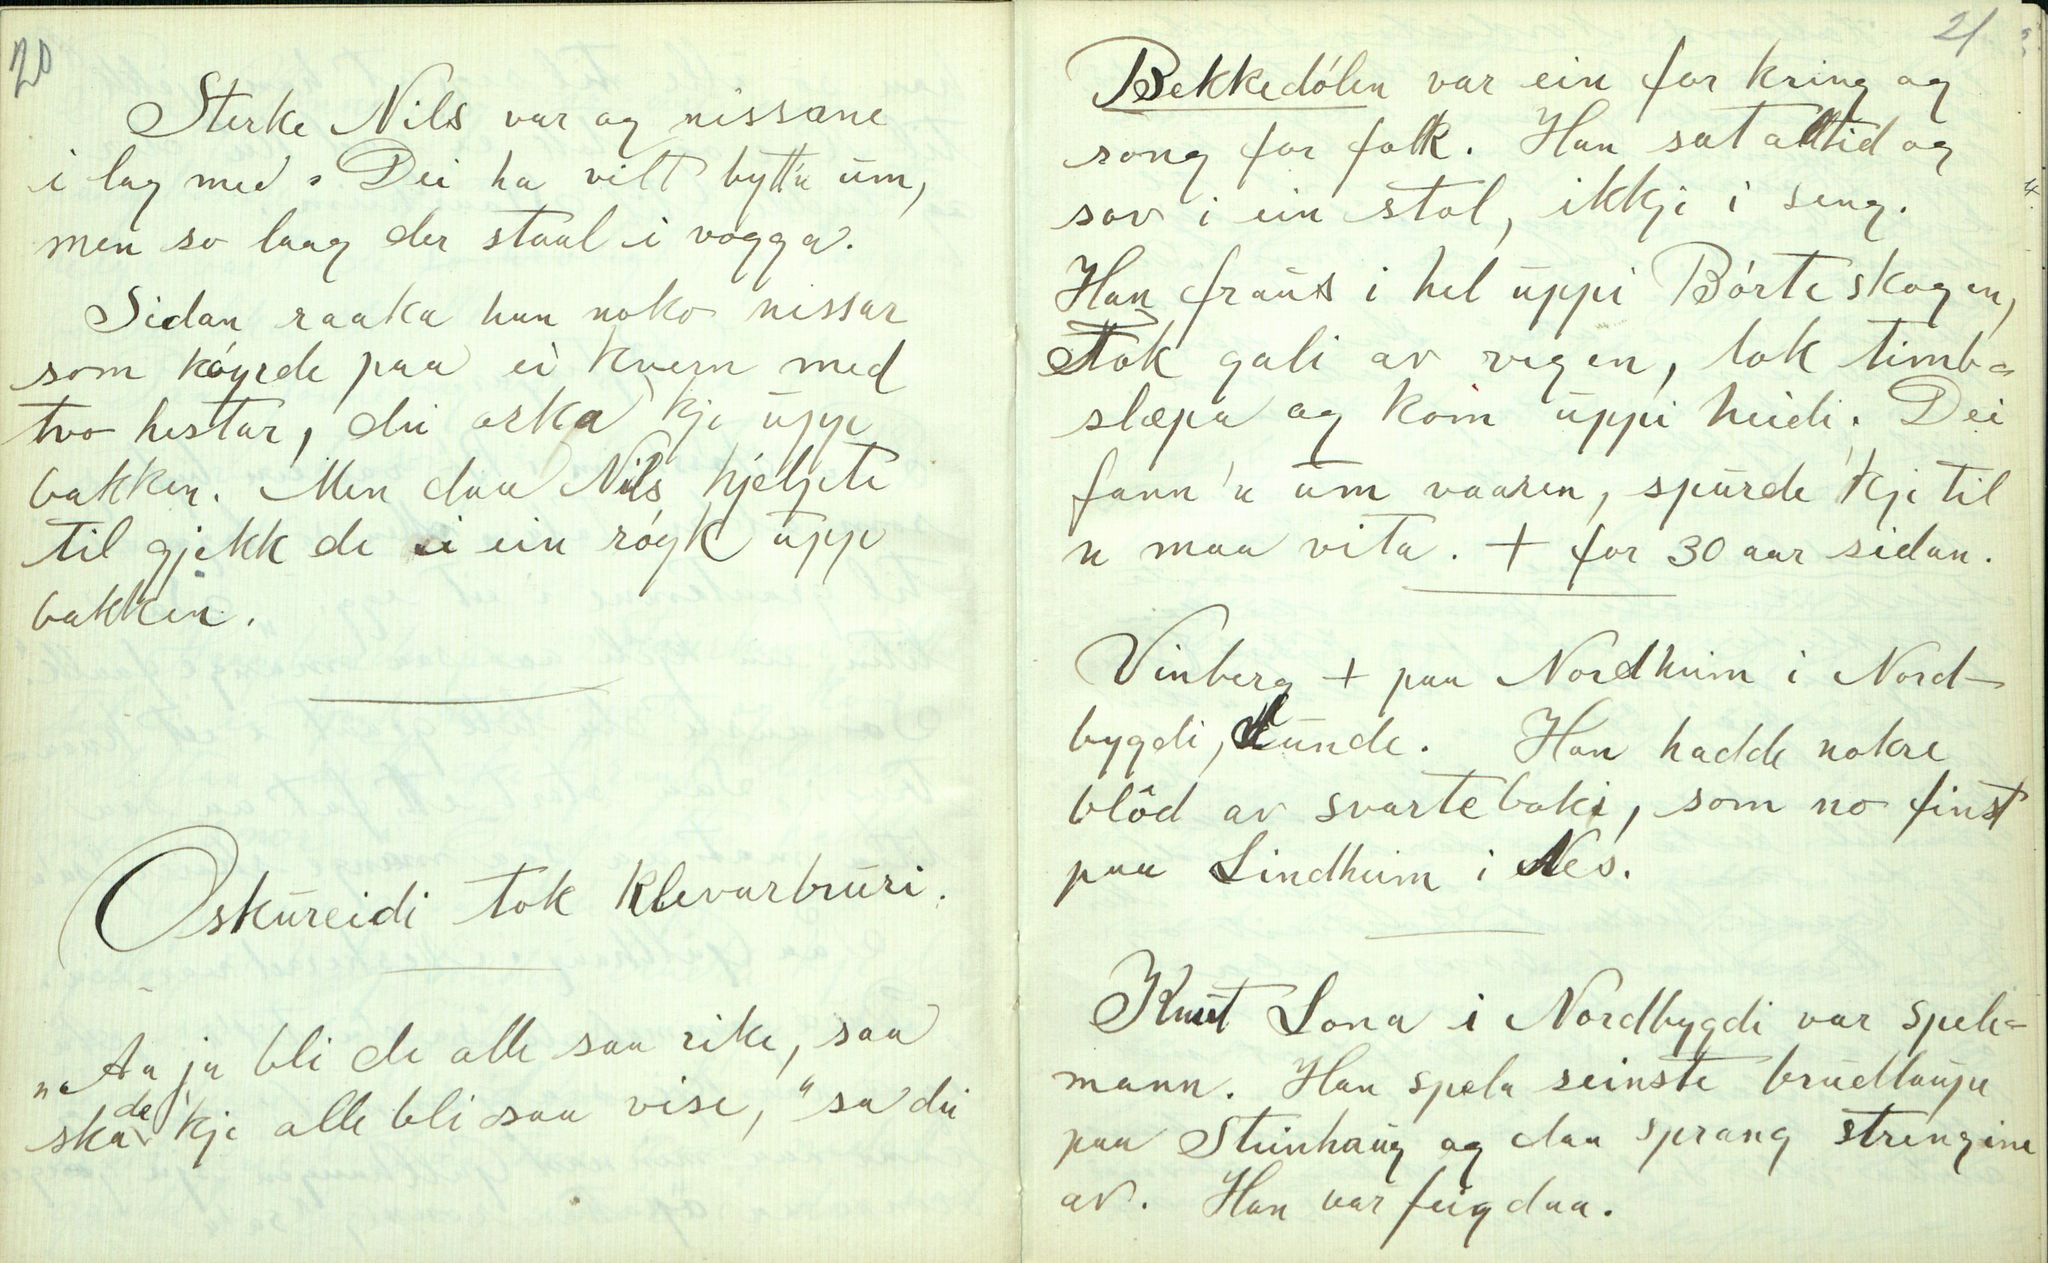 20
Sterke Nils var og nissane
i lag med. Dei ha vilt bytt'n um,
men so laag der staal i vogga.
Sidan raaka han noko nissar
som köyrde paa ei kvern med
tvo hestar, dei orka kje uppi
bakken. Men daa Nils hjelpte
til gjekk de i ein röyk uppi
bakkin.
Oskureidi tok Klevarbruri.
"Aa ja bli de alle saa rike, saa
ska de 'kje alle bli saa vise," sa dei
21
Bekkedölen var ein for kring og
song for folk. Han sat alltid og
sov i ein stol, ikkji i seng.
Han fraus i hel uppi Börteskogen,
Tok gali av vegen, tok timb-
slæpa og kom uppi heidi. Dei
fann 'n um vaaren, spurde 'kje til
n maa vita. + for 30 aar sidan.
Vinberg + paa Nordheim i Nord-
bygdi, Lunde. Han hadde nokre
blöd av svarteboki, som no finst
paa Lindheim i Nes.
Knut Lona i Nordbygdi var spele-
mann. Han spela seinste brudlaupe
paa Steinhaug og daa sprang strengine
av. Han var feig daa.